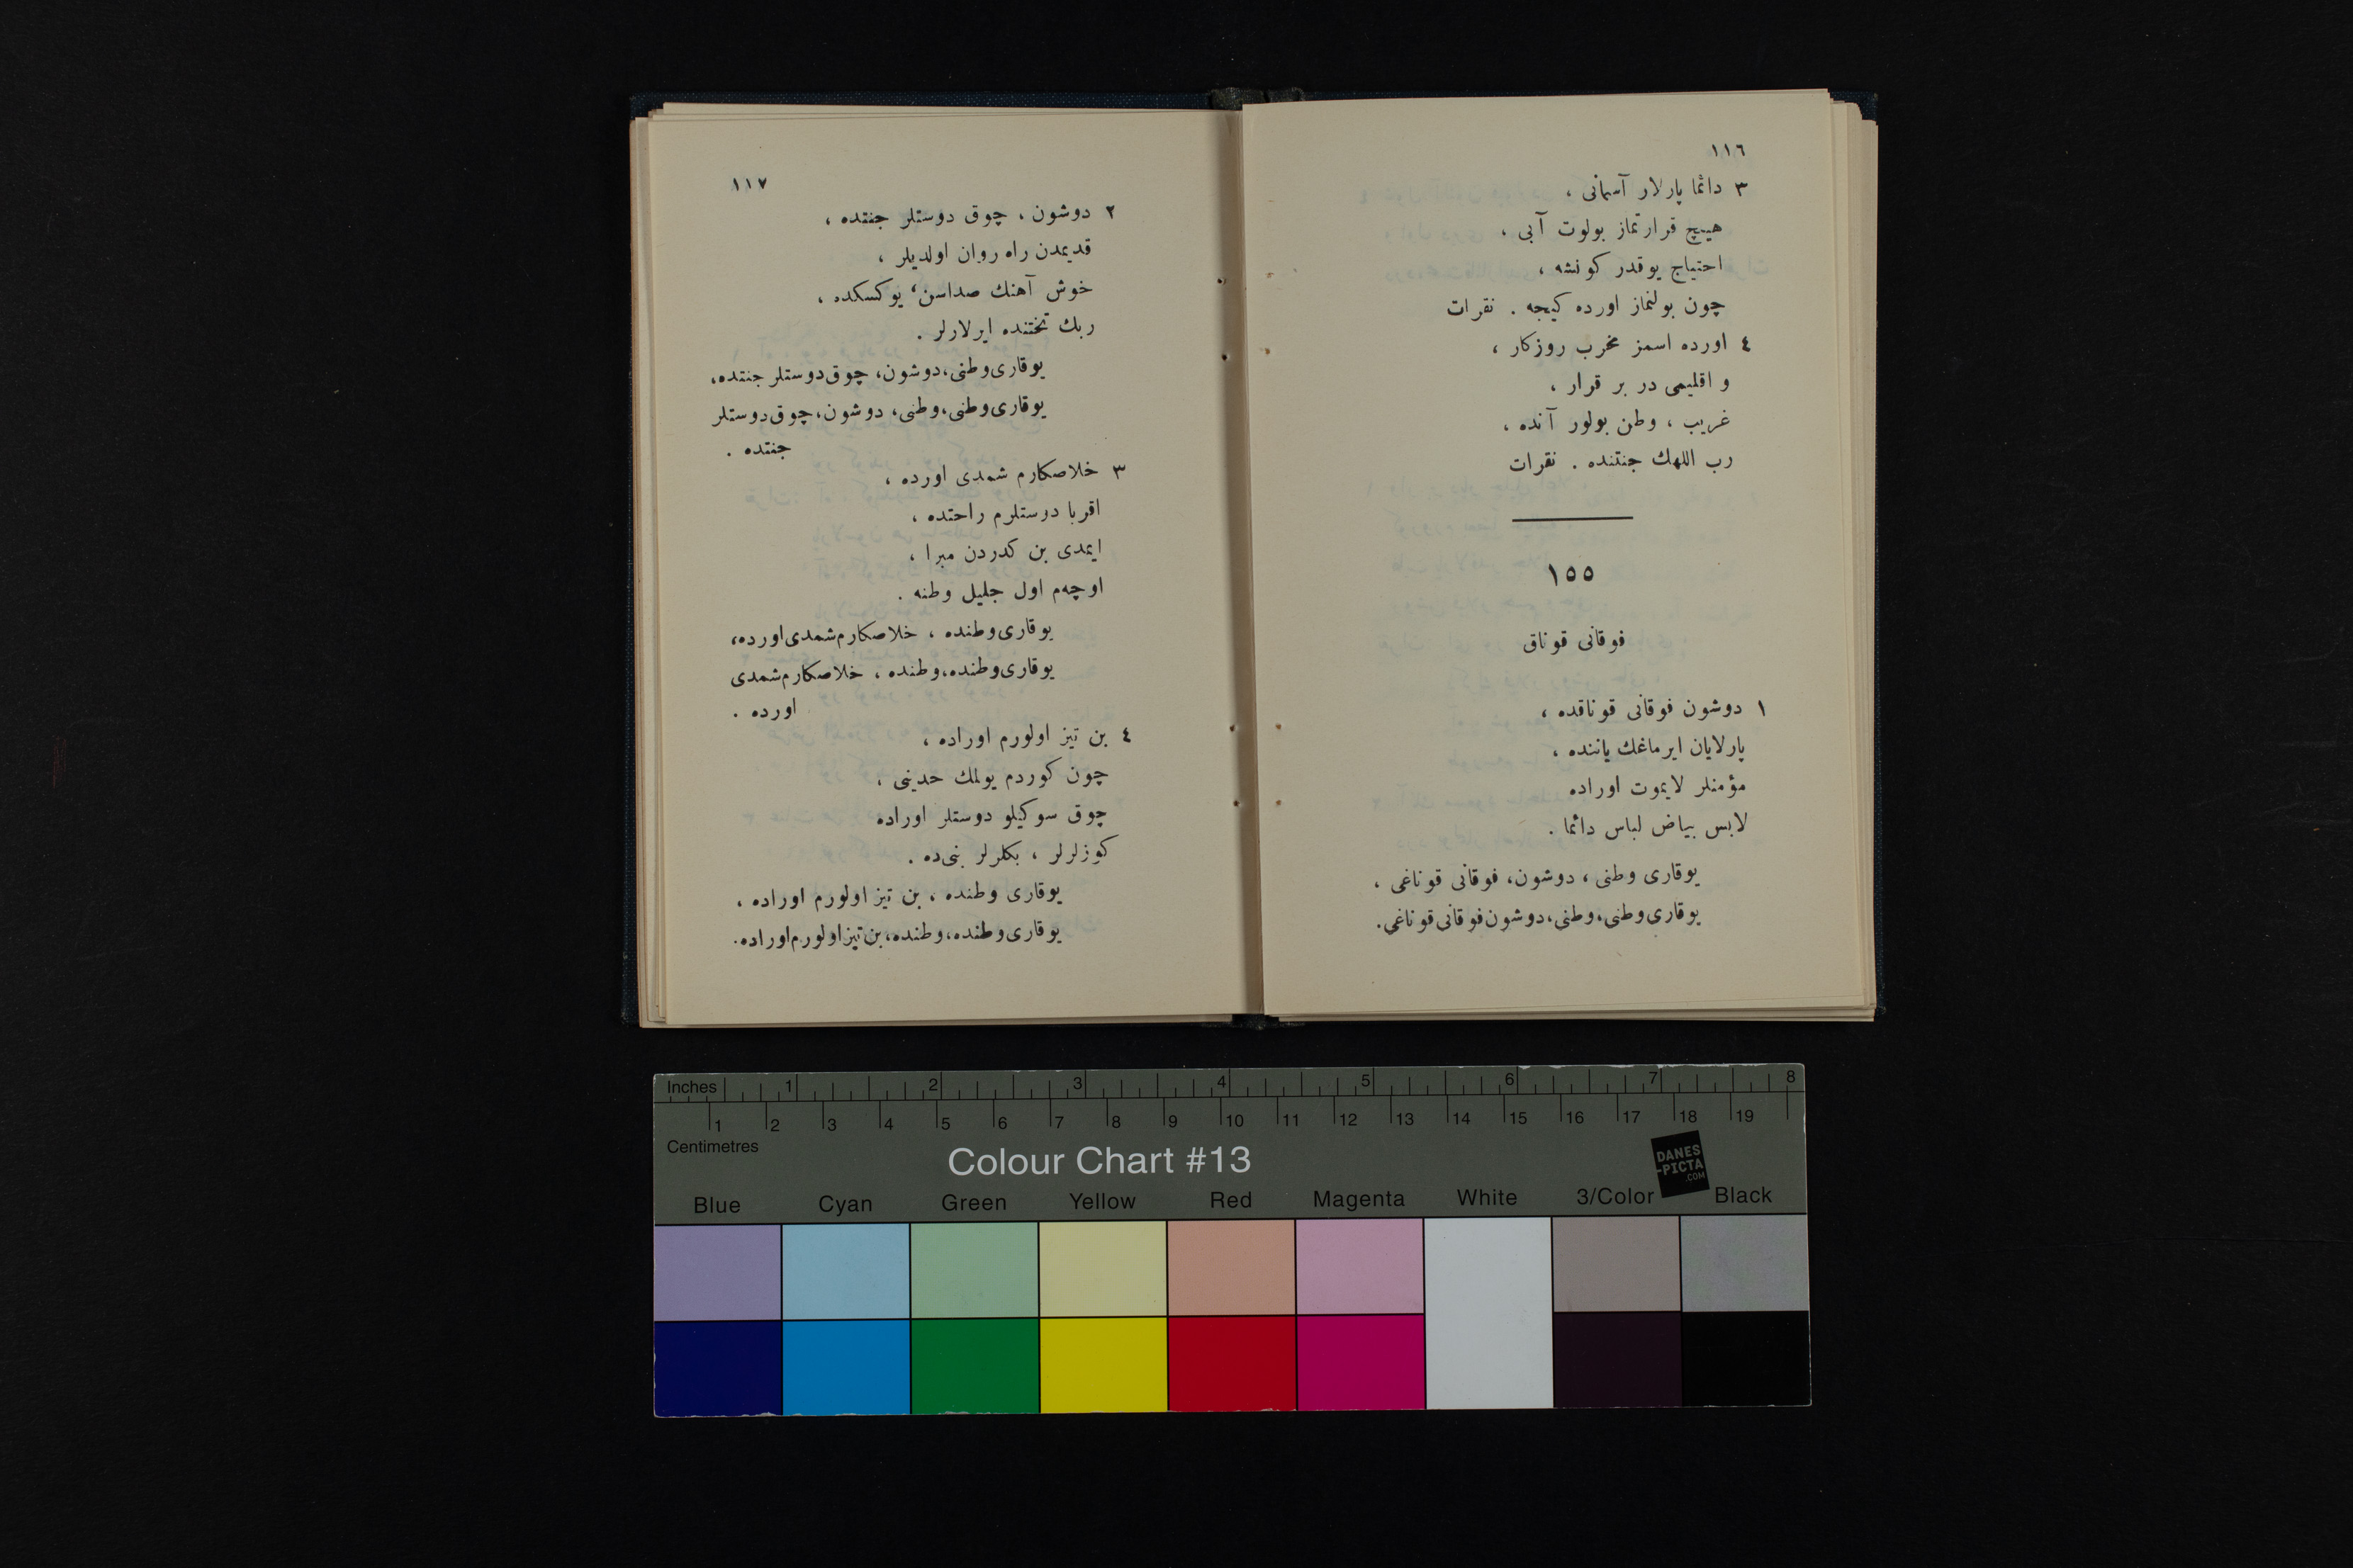 ١١٦
٣ دائما پارلار آسمانی ،
هیچ قرارتماز بولوت آبی ،
احتیاج یوقدر کونشه ،
چون بولنماز اورده کیجه . نقرات
٤ اورده اسمز مخرب روزکار ،
و اقلیمی در بر قرار ،
غریب ، وطن بولور آنده ،
رب اللهك جنتنده . نقرات
١٥٥
فوقانی قوناق
١ دوشون فوقانی قوناقده ،
پارلایان ایرماغك یاننده ،
مؤمنلر لایموت اوراده
لابس بیاض لباس دائما .
یوقاری وطنی ، دوشون، فوقانی قوناغی ،
یوقاری وطنی، وطنی، دوشون فوقانی قوناغی.
١١٧
٢ دوشون ، چوق دوستلر جنتده ،
قدیمدن راه روان اولدیلر ،
خوش آهنك صداسن، یوکسکده ،
ربك تختنده ایرلارلر .
یوقاری وطنی، دوشون، چوق دوستلر جنتده،
یوقاری وطنی، وطنی، دوشون، چوق دوستلر
جنتده .
٣ خلاصکارم شمدی اورده ،
اقربا دوستلرم راحتده ،
ایمدی بن کدردن مبرا ،
اوچه‌م اول جلیل وطنه .
یوقاری وطنده ، خلاصکارم شمدی اورده،
یوقاری وطنده، وطنده ، خلاصکارم شمدی
اورده .
٤ بن تیز اولورم اوراده ،
چون کوردم یولمك حدینی ،
چوق سوکیلو دوستلر اوراده
کوزلرلر ، بکلرلر بنی‌ده .
یوقاری وطنده ، بن تیز اولورم اوراده ،
یوقاری وطنده، وطنده، بن تیز اولورم اوراده.
Inches 1 2 3 4 5 6 7 8
1 2 3 4 5 6 7 8 9 10 11 12 13 14 15 16 17 18 19
Centimetres
Colour Chart #13
DANES
-PICTA
.COM
Blue Cyan Green Yellow Red Magenta White 3/Color Black